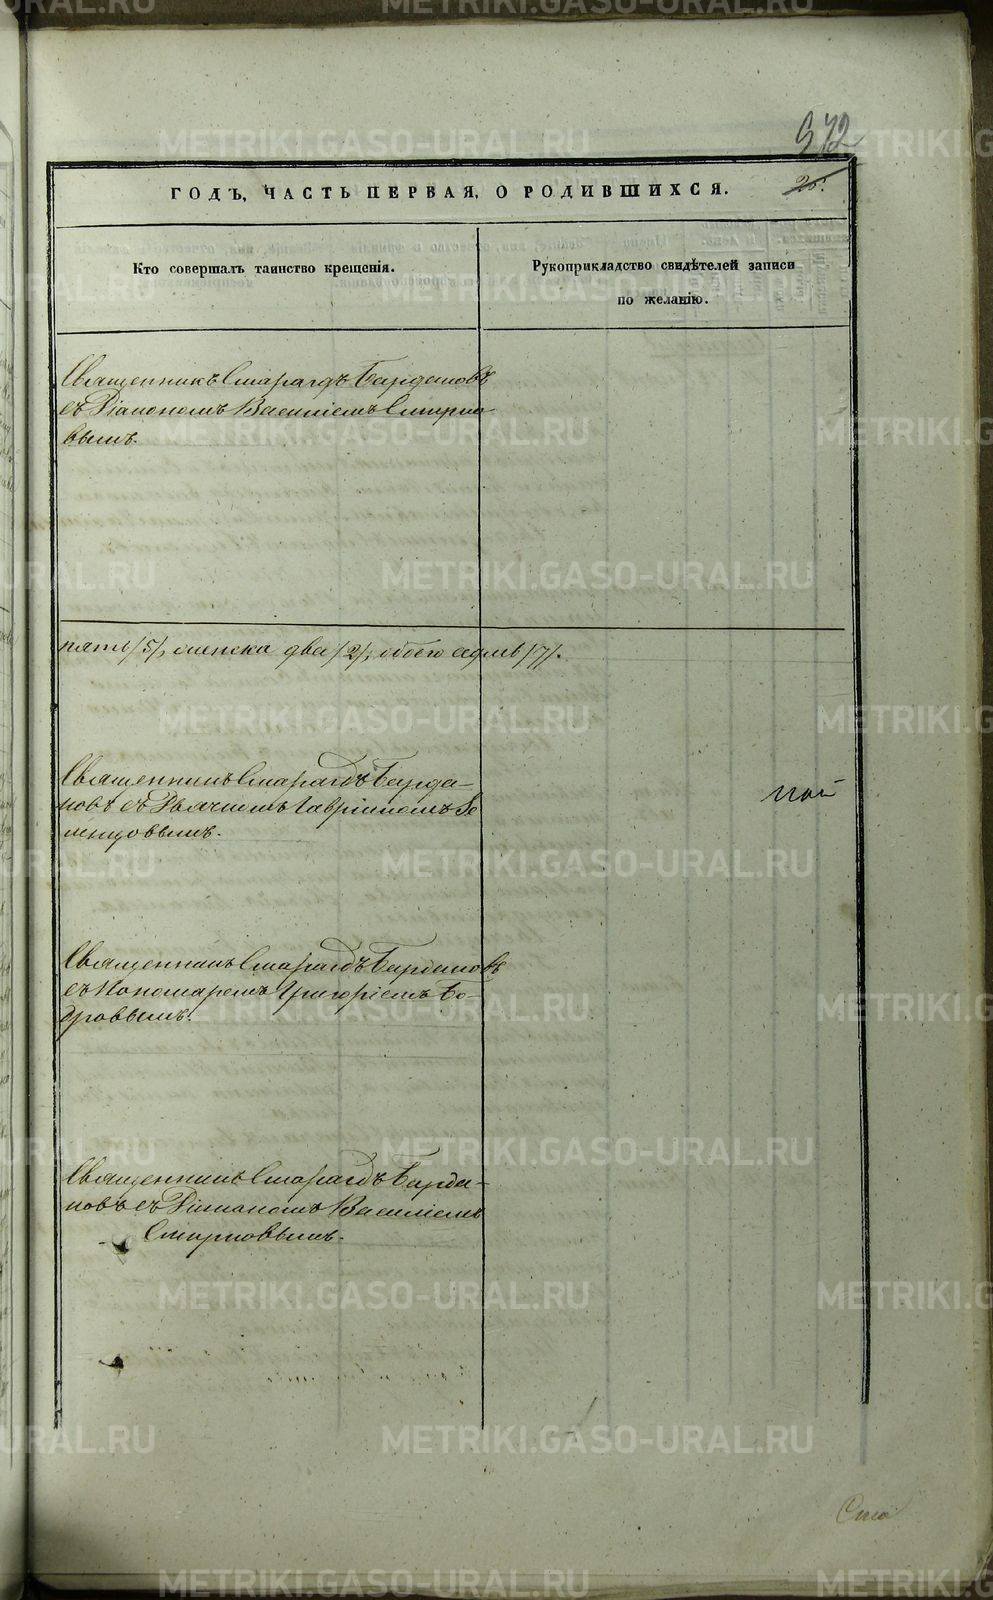 972
25.
ГОДЪ, ЧАСТЬ ПЕРВАЯ, О РОДИВШИХСЯ.
Кто совершалъ таинство крещенія.
Рукоприкладство свидѣтелей записи
по желанію.
Священникъ Смарагдъ Бардановъ
съ Діакономъ Василіемъ Смирно-
вымъ.
пять /5/, женска два /2/, обоего седмь /7/.
Священникъ Смарагдъ Барда-
новъ съ Дьячкомъ Гавріиломъ Зе
менцовымъ.
маи
Священникъ Смарагдъ Бардановъ
съ Пономаремъ Григоріемъ Бо-
бровымъ.
Священникъ Смарагдъ Барда-
новъ съ Діакономъ Василіемъ
Смирновымъ.
METRIKI.GASO-URAL.RU